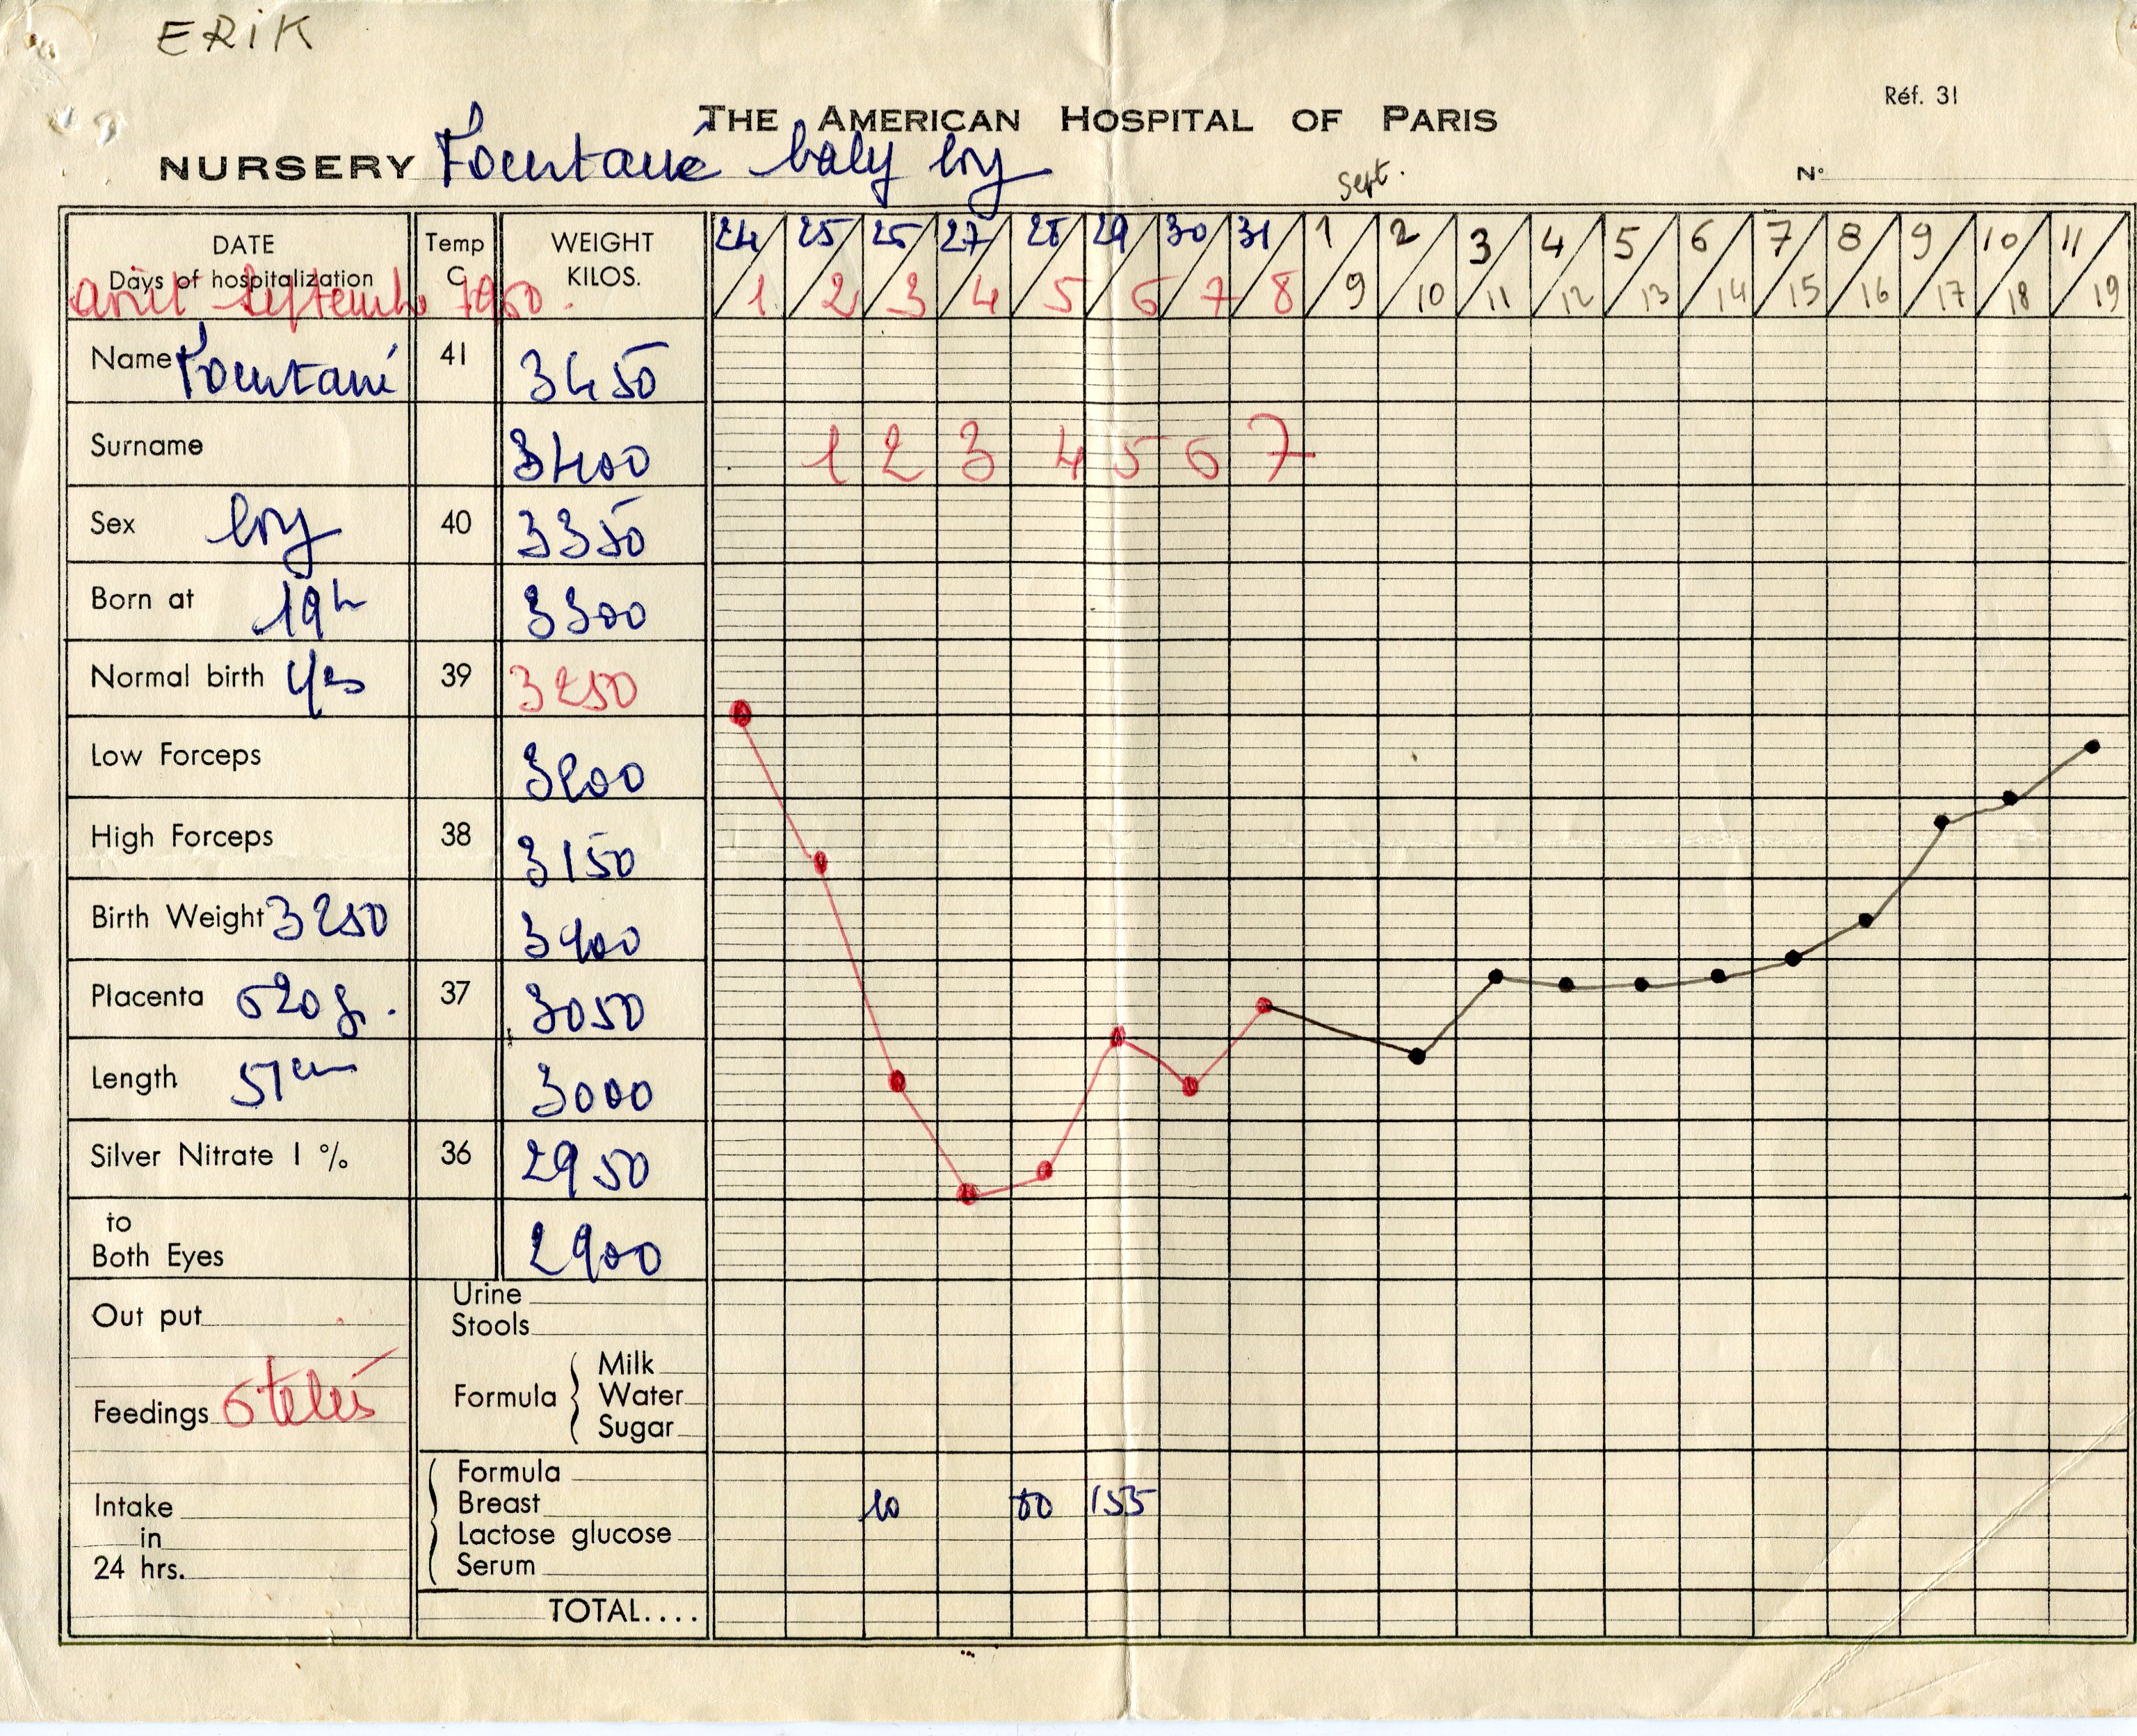 ERiK
Réf. 31
THE AMERICAN HOSPITAL OF PARIS
NURSERY baby boy
Sept.
N°
DATE Temp WEIGHT 24 25 26 27 28 29 30 31 1 2 3 4 5 6 7 8 9 10 11
Days of hospitalization C. KILOS. 1 2 3 4 5 6 7 8 9 10 11 12 13 14 15 16 17 18 19
août Septembre 1960.
Name 41 3450
Surname 3400 1 2 3 4 5 6 7
Sex boy 40 3350
Born at 19h 3300
Normal birth yes 39 3250
Low Forceps 3200
High Forceps 38 3150
Birth Weight 3250 3100
Placenta 620 g. 37 3050
Length 51 cm 3000
Silver Nitrate 1 % 36 2950
to
Both Eyes 2900
Out put Urine
Stools
Milk
Formula Water
Sugar
Feedings
Formula
Intake Breast 10 155
in Lactose glucose
24 hrs. Serum
TOTAL....